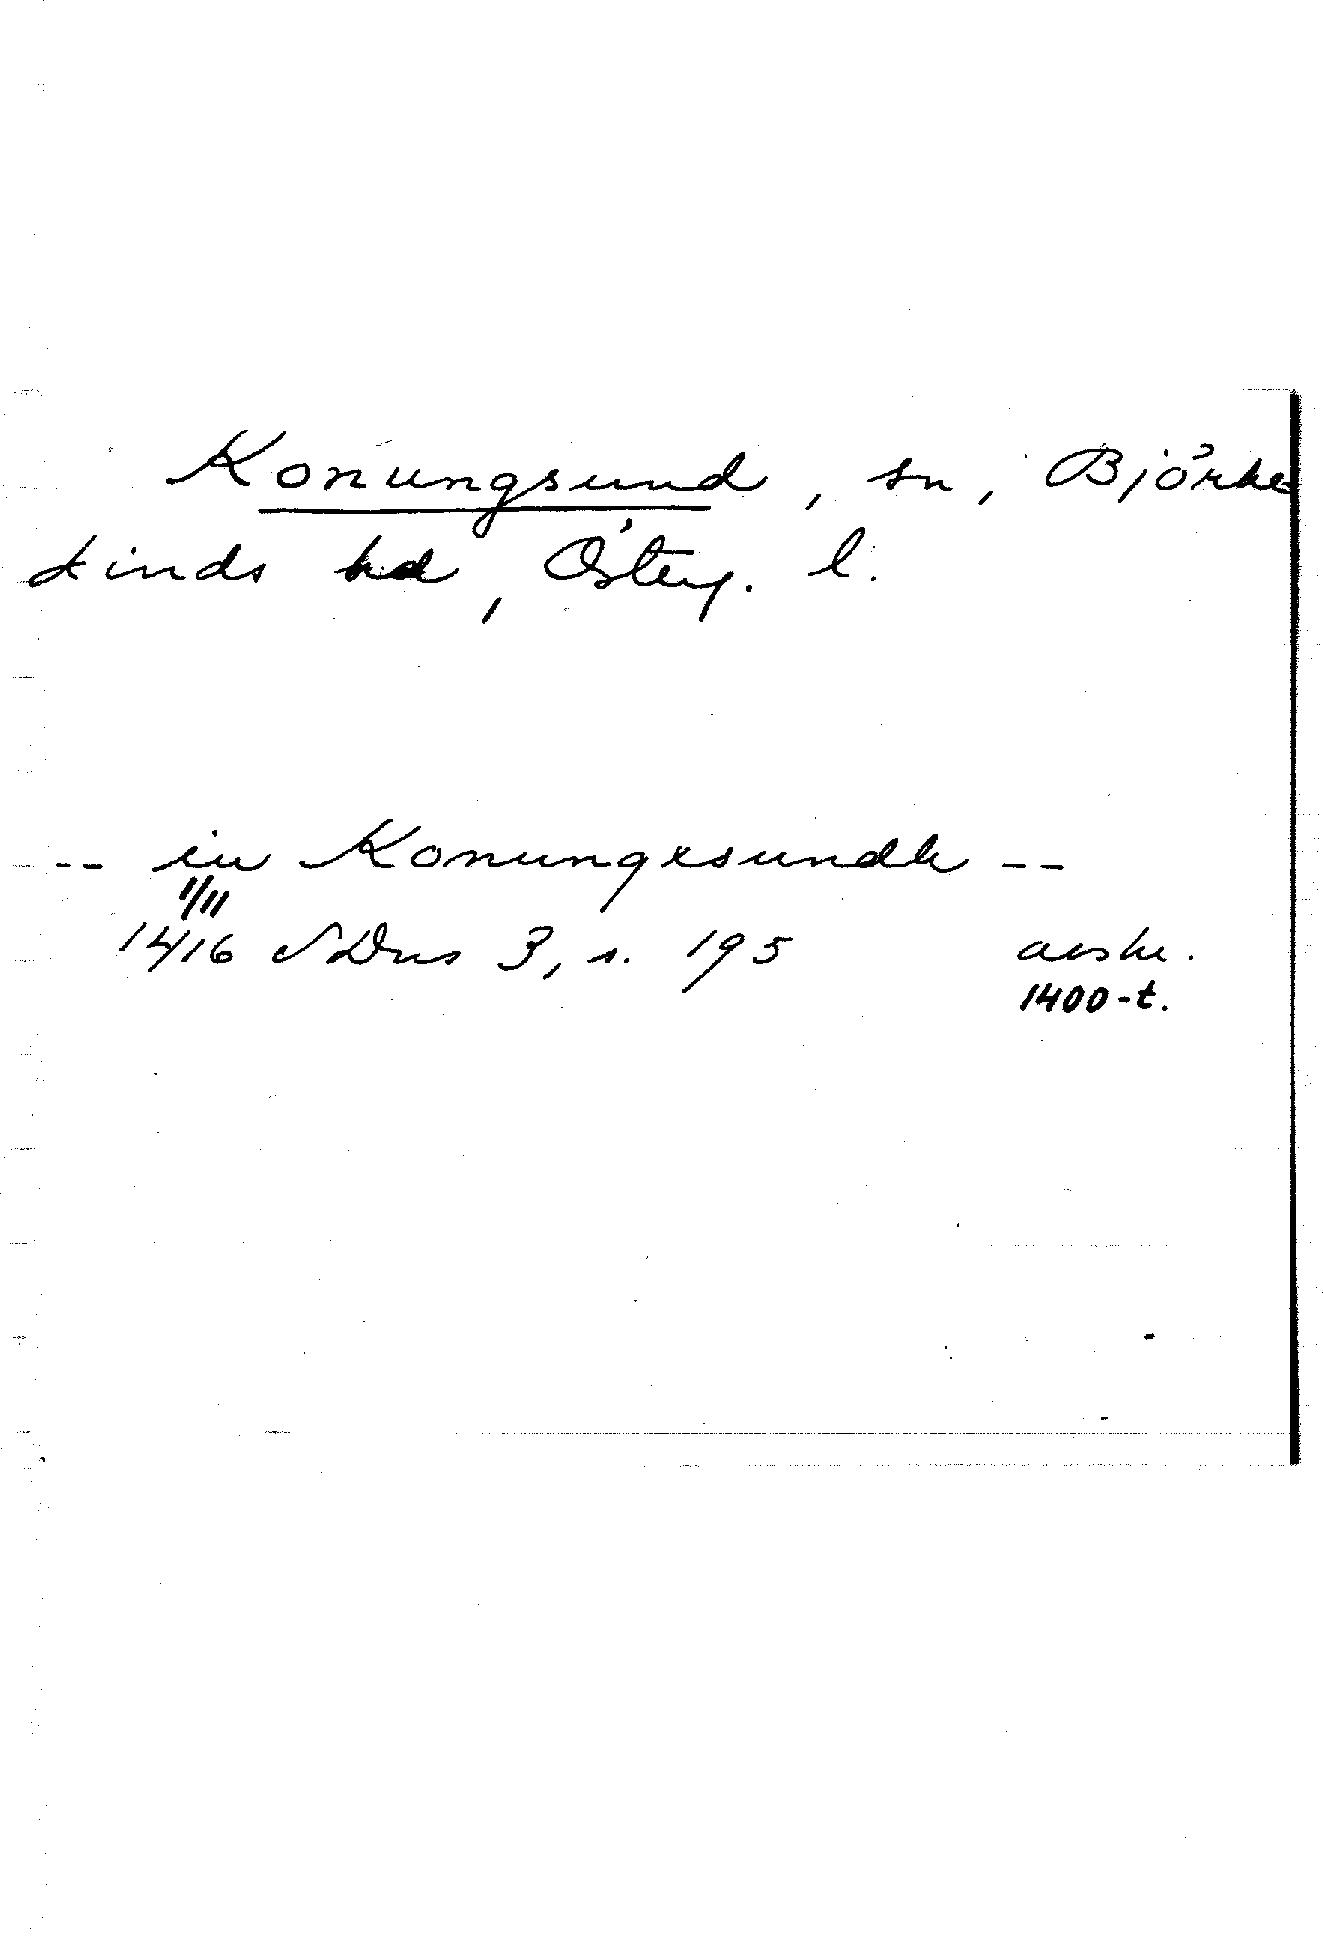 Konungsund, sn, Björke
kinds hd, Österg. l.
-- in Konungxsundh --
1/11
1416 SDns 3, s. 195 avskr.
1400-t.